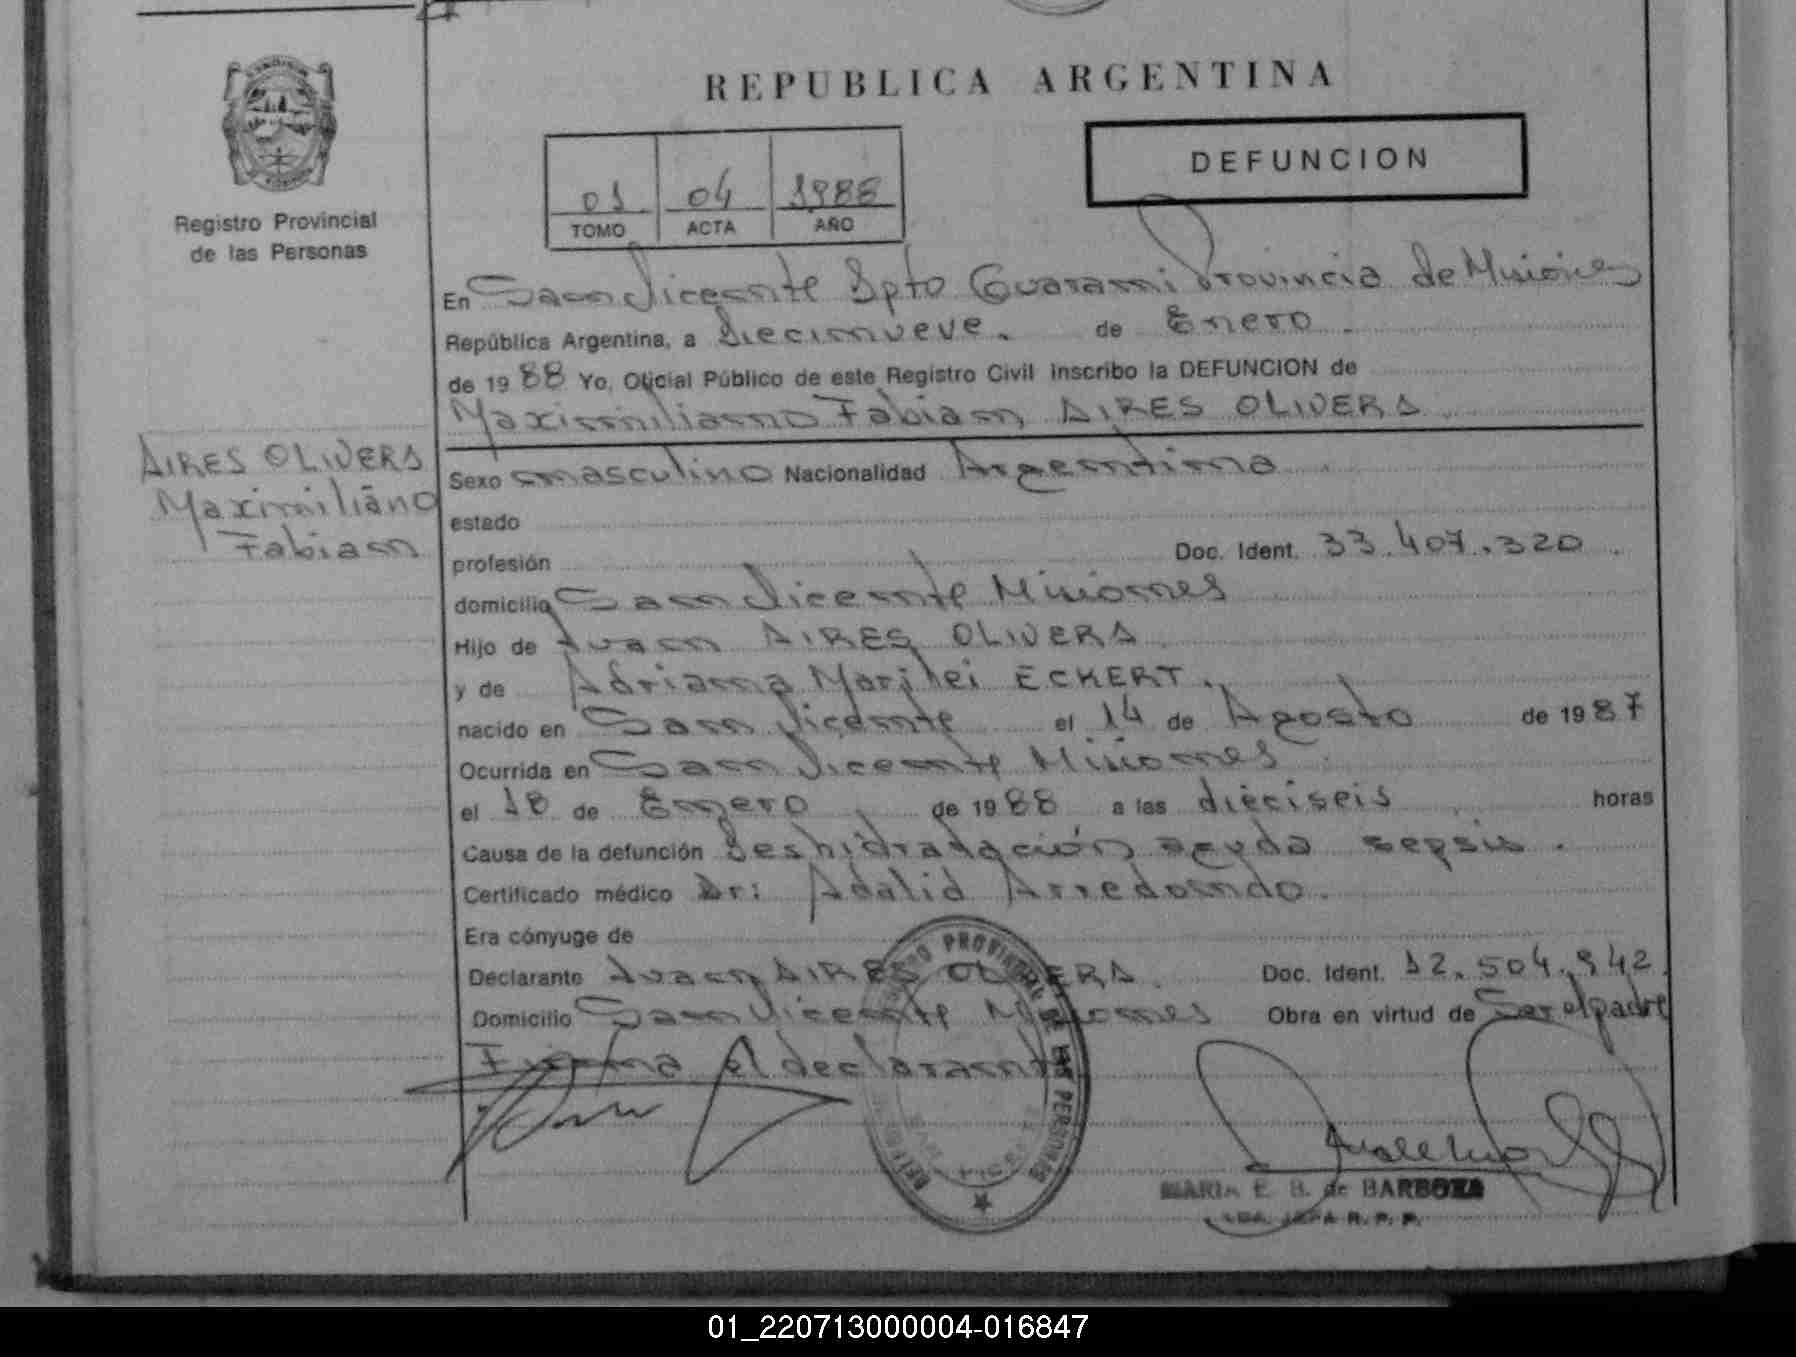 REPUBLICA ARGENTINA
Registro Provincial
de las Personas
01 04 1988
TOMO ACTA AÑO
DEFUNCION
En San Vicente Dpto Guarani Provincia de Misiones
República Argentina, a Diecinueve. de Enero.
de 1988 Yo, Oficial Público de este Registro Civil inscribo la DEFUNCION de
Maximiliano Fabian AIRES OLIVERA
AIRES OLIVERA
Maximiliano
Fabian
Sexo masculino Nacionalidad Argentina
estado
profesión Doc. Ident. 33.407.320
domicilio San Vicente Misiones
Hijo de Juan AIRES OLIVERA
y de Adriana Marjlei ECKERT.
nacido en San Vicente el 14 de Agosto de 1987
Ocurrida en San Vicente Misiones
el 18 de Enero de 1988 a las dieciseis horas
Causa de la defunción Deshidratación aguda sepsis.
Certificado médico Dr: Adalid Arredondo.
Era cónyuge de
Declarante Juan AIRES OLIVERA. Doc. Ident. 12.504.942.
Domicilio San Vicente Misiones Obra en virtud de Ser el padre
Firma el declarante
MARIA E. B. de BARBOZA
JEFA R. P. P.
01_220713000004-016847